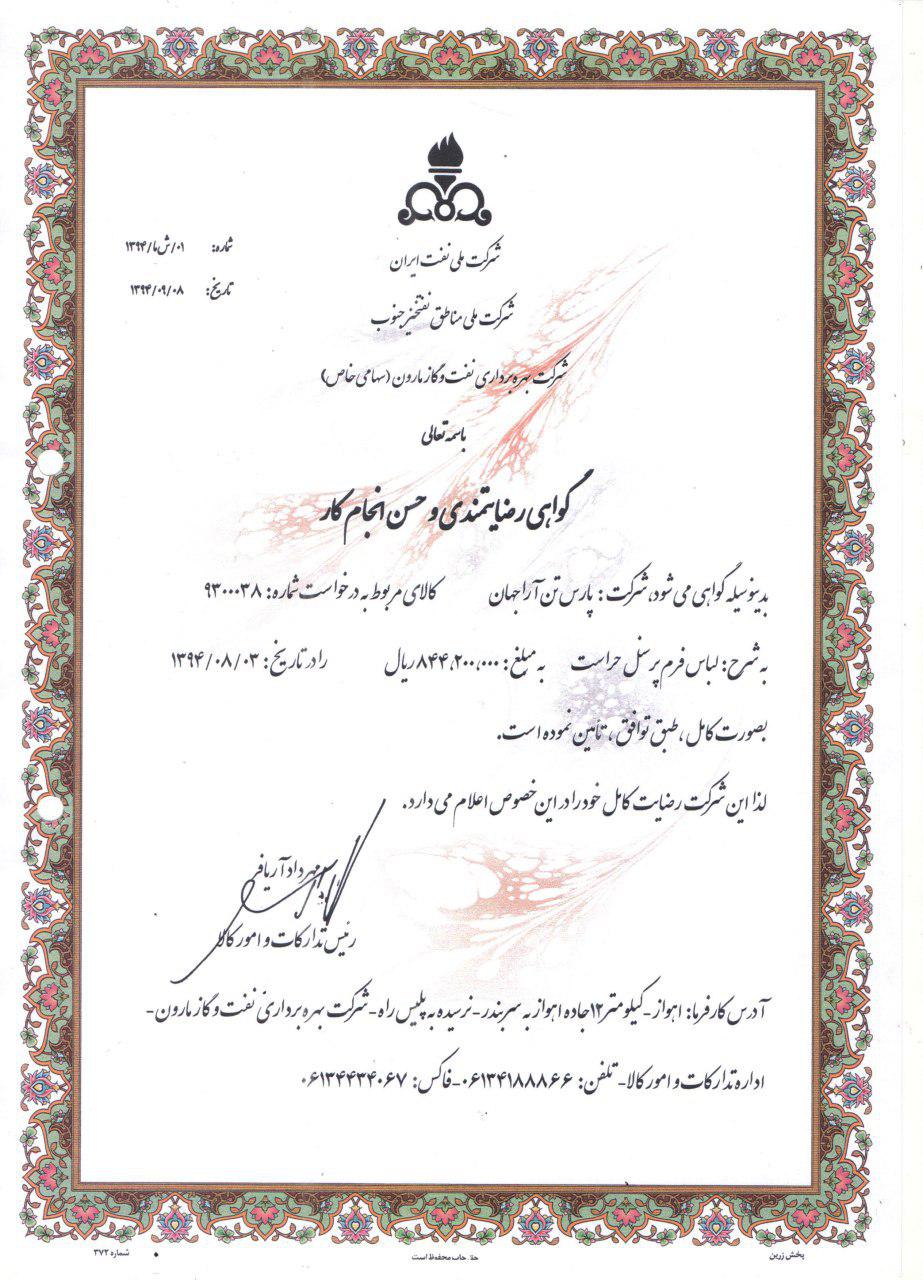 شماره: ۰۱/ش‌ما/۱۳۹۴
تاریخ: ۱۳۹۴/۰۹/۰۸
شرکت ملی نفت ایران
شرکت ملی مناطق نفتخیز جنوب
شرکت بهره برداری نفت و گاز مارون (سهامی خاص)
باسمه تعالی
گواهی رضایتمندی و حسن انجام کار
بدینوسیله گواهی می شود، شرکت: پارس تن آرا جهان کالای مربوط به درخواست شماره: ۹۳۰۰۰۳۸
به شرح: لباس فرم پرسنل حراست به مبلغ: ۸۴۴,۲۰۰,۰۰۰ ریال را در تاریخ: ۱۳۹۴/۰۸/۰۳
بصورت کامل، طبق توافق، تأمین نموده است.
لذا این شرکت رضایت کامل خود را در این خصوص اعلام می دارد.
مهرداد آریافر
رئیس تدارکات و امور کالا
آدرس کارفرما: اهواز-کیلومتر ۱۲ جاده اهواز به سربندر-نرسیده به پلیس راه-شرکت بهره برداری نفت و گاز مارون-
اداره تدارکات و امور کالا- تلفن: ۰۶۱۳۴۱۸۸۸۶۶-فاکس: ۰۶۱۳۴۴۳۴۰۶۷
پخش زرین
حق چاپ محفوظ است
شماره ۳۷۲